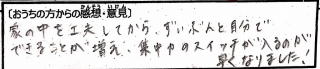 [おうちの方からの感想・意見]
家の中を工夫してから、ずいぶんと自分で
できることが増え、集中力のスイッチが入るのが
早くなりました!